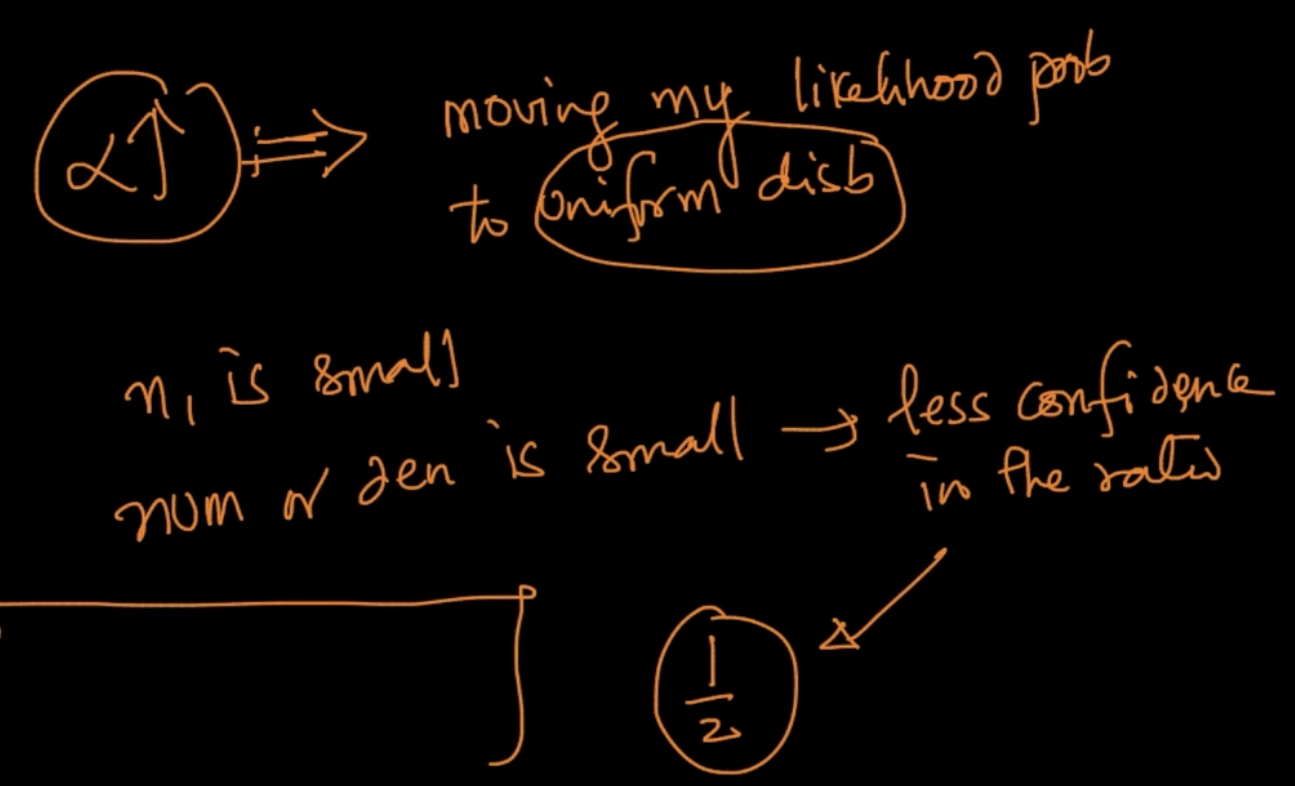 α↑ ⟹ moving my likelihood prob
to uniform disb
n₁ is small
num or den is small → less confidence
in the ratio
1/2